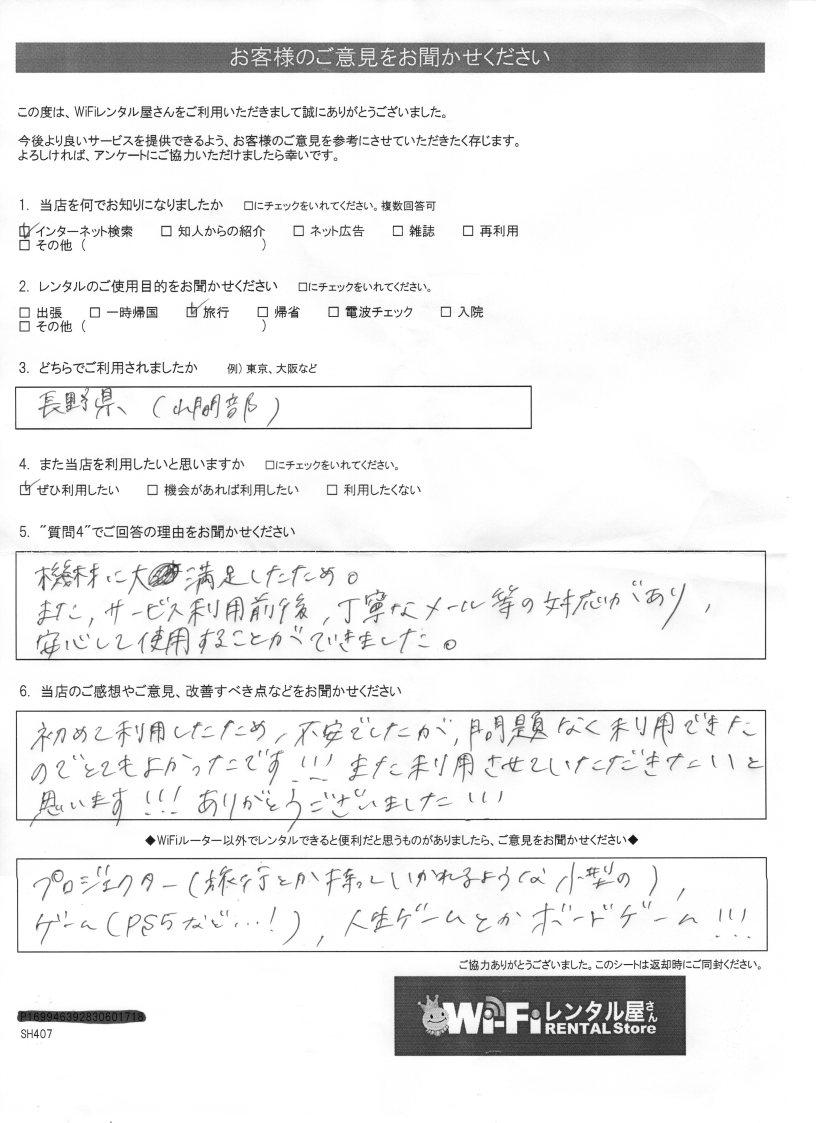 お客様のご意見をお聞かせください
この度は、WiFiレンタル屋さんをご利用いただきまして誠にありがとうございました。
今後より良いサービスを提供できるよう、お客様のご意見を参考にさせていただきたく存じます。
よろしければ、アンケートにご協力いただけましたら幸いです。
1. 当店を何でお知りになりましたか □にチェックをいれてください。複数回答可
☑インターネット検索 □ 知人からの紹介 □ ネット広告 □ 雑誌 □ 再利用
□ その他 ( )
2. レンタルのご使用目的をお聞かせください □にチェックをいれてください。
□ 出張 □ 一時帰国 ☑旅行 □ 帰省 □ 電波チェック □ 入院
□ その他 ( )
3. どちらでご利用されましたか 例)東京、大阪など
長野県、(山間部)
4. また当店を利用したいと思いますか □にチェックをいれてください。
☑ぜひ利用したい □ 機会があれば利用したい □ 利用したくない
5. "質問4"でご回答の理由をお聞かせください
機材に大満足したため。
また、サービス利用前後、丁寧なメール等の対応があり、
安心して使用することができました。
6. 当店のご感想やご意見、改善すべき点などをお聞かせください
初めて利用したため、不安でしたが、問題なく利用できた
のでとてもよかったです!!! また利用させていただきたいと
思います!!! ありがとうございました!!!
◆WiFiルーター以外でレンタルできると便利だと思うものがありましたら、ご意見をお聞かせください◆
プロジェクター(旅行とか持っていかれるような小型の)、
ゲーム(PS5など…!)、人生ゲームとかボードゲーム!!!
ご協力ありがとうございました。このシートは返却時にご同封ください。
Wi-Fiレンタル屋さん
RENTAL Store
P169946392830601718
SH407